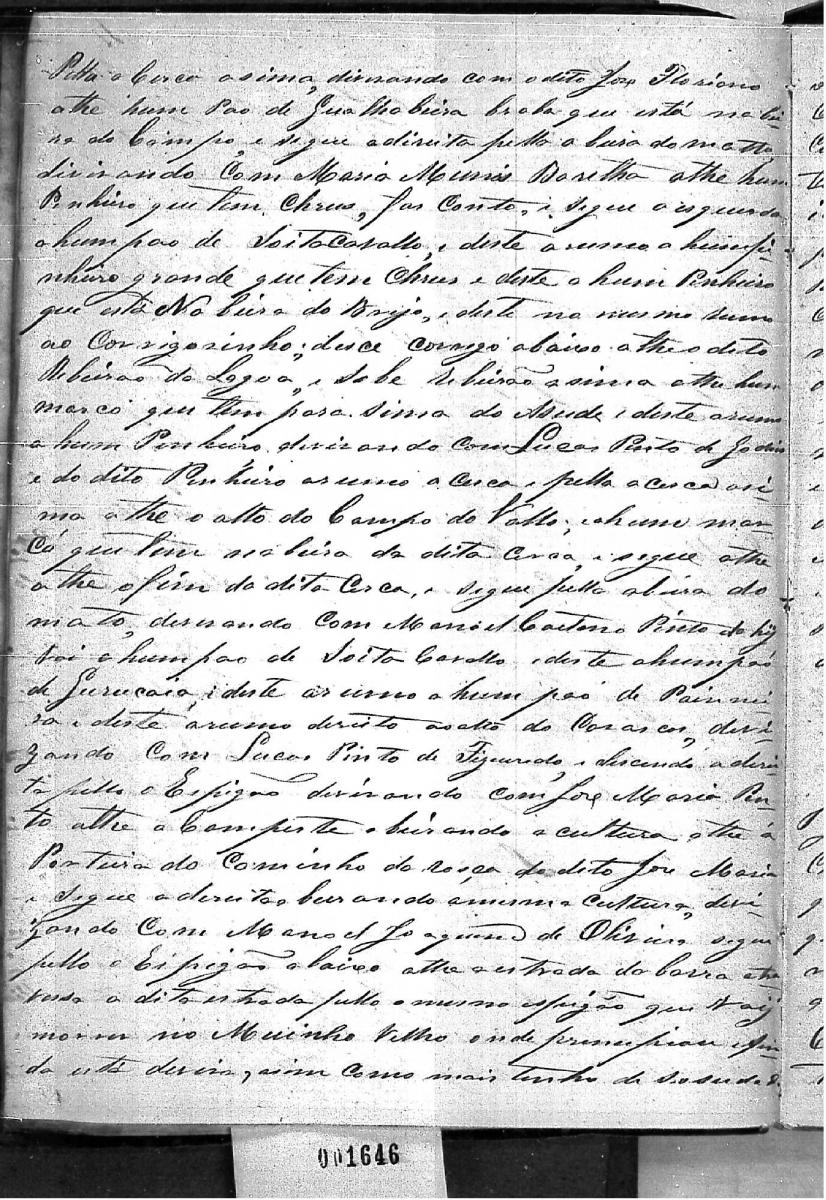 Pella a Cerca asima, divizando com o dito Joze Floriano
athe hum Pao de Gualhabeira braba que está na bei-
ra do Campo, e segue a direita pella a beira do matto
divizando Com Maria Munis Baretha athe hum
Pinheiro que tem Chrus, faz Canto, e segue a esquerda
a hum pao de Soita Cavallo, e deste a rumo a hum pi-
nheiro grande que tem Chrus e deste a hum Pinheiro
que está Na beira do Brejo, e deste no mesmo rumo
ao Corrigosinho, desce corrego abaixo athe o dito
Ribeirão da Lagoa, e Sobe Ribeirão asima athe hum
marco que tem para sima do Asude e deste a rumo
a hum Pinheiro divizando com Lucas Pinto de
e do dito Pinheiro a rumo a cerca e pella a cerca asi-
ma athe o alto do Campo do Vallo, e a hum mar-
co que tem na beira da dita Cerca, e segue athe
athe o fim da dita Cerca, e segue pella a beira do
mato, divizando Com Manoel Caetano Pinto dahy
vai a hum pao de Soita Cavallo e deste a hum pao
de Gurucaia, e deste a rumo a hum pao de Painei-
ra e deste a rumo direito ao alto do devi-
zando Com Lucas Pinto de Figueredo, e descendo a direi-
ta pello o Espigão devizando com Joze Maria Pin-
to athe a Campeste abeirando a cultura, athe a
Porteira do Caminho da rosca do dito Joze Maria
e segue a direita abeirando a mesma cultura, devi-
zando Com Manoel Joaquim de Oliveira segue
pello o Espigão abaixo athe a estrada da barra atra-
vessa a dita estrada pello o mesmo espigão que Vay
morrer no Muinho Velho onde principiou e fin-
da está deviza, asim como mais tenho de
001646